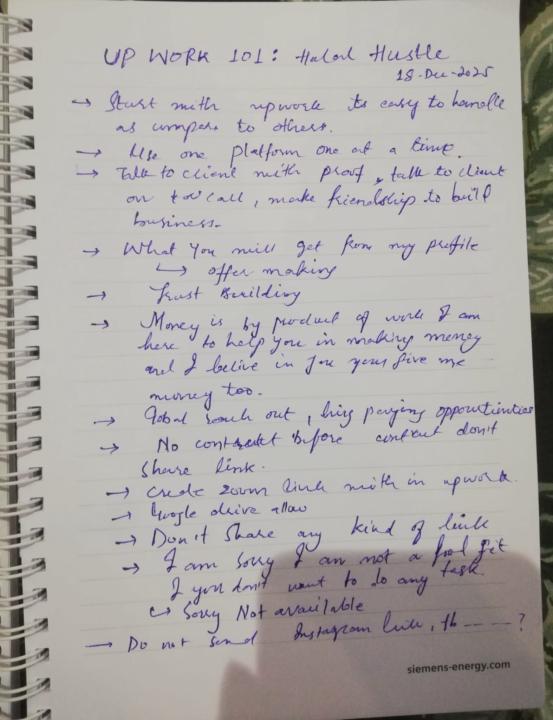 UP WORK 101: Halal Hustle
18-Dec-2025
→ Start with upwork its easy to handle
as compare to others.
→ Use one platform one at a time.
→ Talk to client with proof, talk to client
on call, make friendship to build
business.
→ What You will get from my profile
↳ offer making
→ Trust Building
→ Money is by product of work I am
here to help you in making money
and I belive in you give me
money too.
→ Global reach out, high paying opportunities
→ No contract before contract don't
share link.
→ create zoom link with in upwork.
→ Google drive allow
→ Don't share any kind of link
→ I am sorry I am not a good fit
If you don't want to do any task.
↳ Sorry Not available
→ Do not send Instagram link, fb ----?
siemens-energy.com